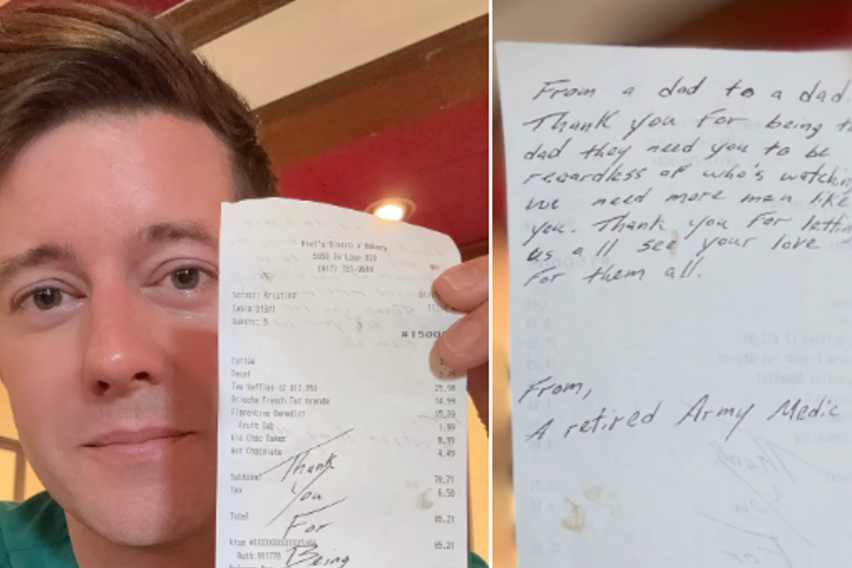 5050 Loop 820
Server: Kristina
Guests: 5
#15000
Coffee
Decaf 2.
Two Waffles (2 @12.99) 25.98
Brioche French Tst Grande 14.99
Florentine Benedict
Fruit Sub 1.99
Kid Choc Cakes 8.99
Hot Chocolate 4.49
Subtotal 78.71
Tax 6.50
Total 85.21
85.21
Thank
You
For
Being
From a dad to a dad.
Thank you For being the
dad they need you to be
regardless of who's watching
we need more men like
you. Thank you For letting
us all see your love
For them all.
From,
A retired Army Medic